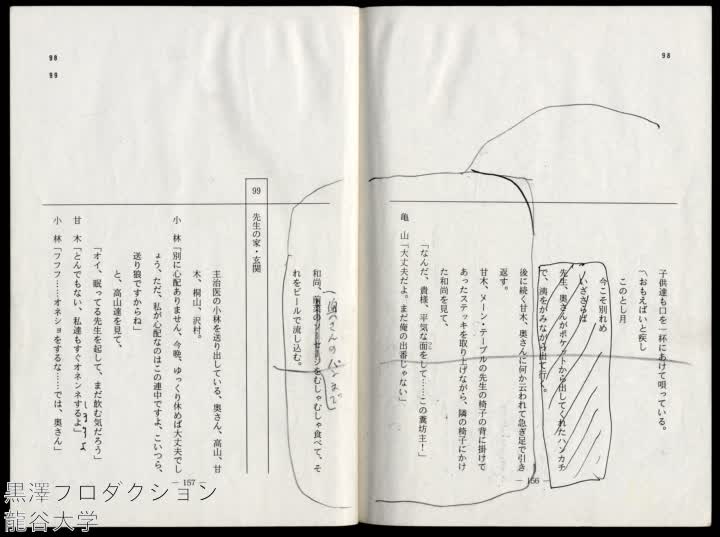 98
子供達も口を一杯にあけて唄っている。
〽おもえばいと疾し
このとし月
今こそ別れめ
いざさらば
先生、奥さんがポケットから出してくれたハンカチ
で、洟をかみながら出て行く。
後に続く甘木、奥さんに何か云われて急ぎ足で引き
返す。
甘木、メーン・テーブルの先生の椅子の背に掛けて
あったステッキを取り上げながら、隣の椅子にかけ
た和尚を見て、
「なんだ、貴様、平気な面をして……この糞坊主！」
亀　山「大丈夫だよ。まだ俺の出番じゃない」
— 156 —
98
99
和尚、前菜のソーセージをむしゃむしゃ食べて、そ
れをビールで流し込む。
99　先生の家・玄関
主治医の小林を送り出している、奥さん、高山、甘
木、桐山、沢村。
小　林「別に心配ありません、今晩、ゆっくり休めば大丈夫でし
ょう、ただ、私が心配なのはこの連中ですよ、こいつら、
送り狼ですからね」
と、高山達を見て、
「オイ、眠ってる先生を起して、まだ飲む気だろう」
甘　木「とんでもない、私達もすぐオネンネするよ」
しますよ
小　林「フフフ……オネショをするな……では、奥さん」
— 157 —
黒澤プロダクション
龍谷大学